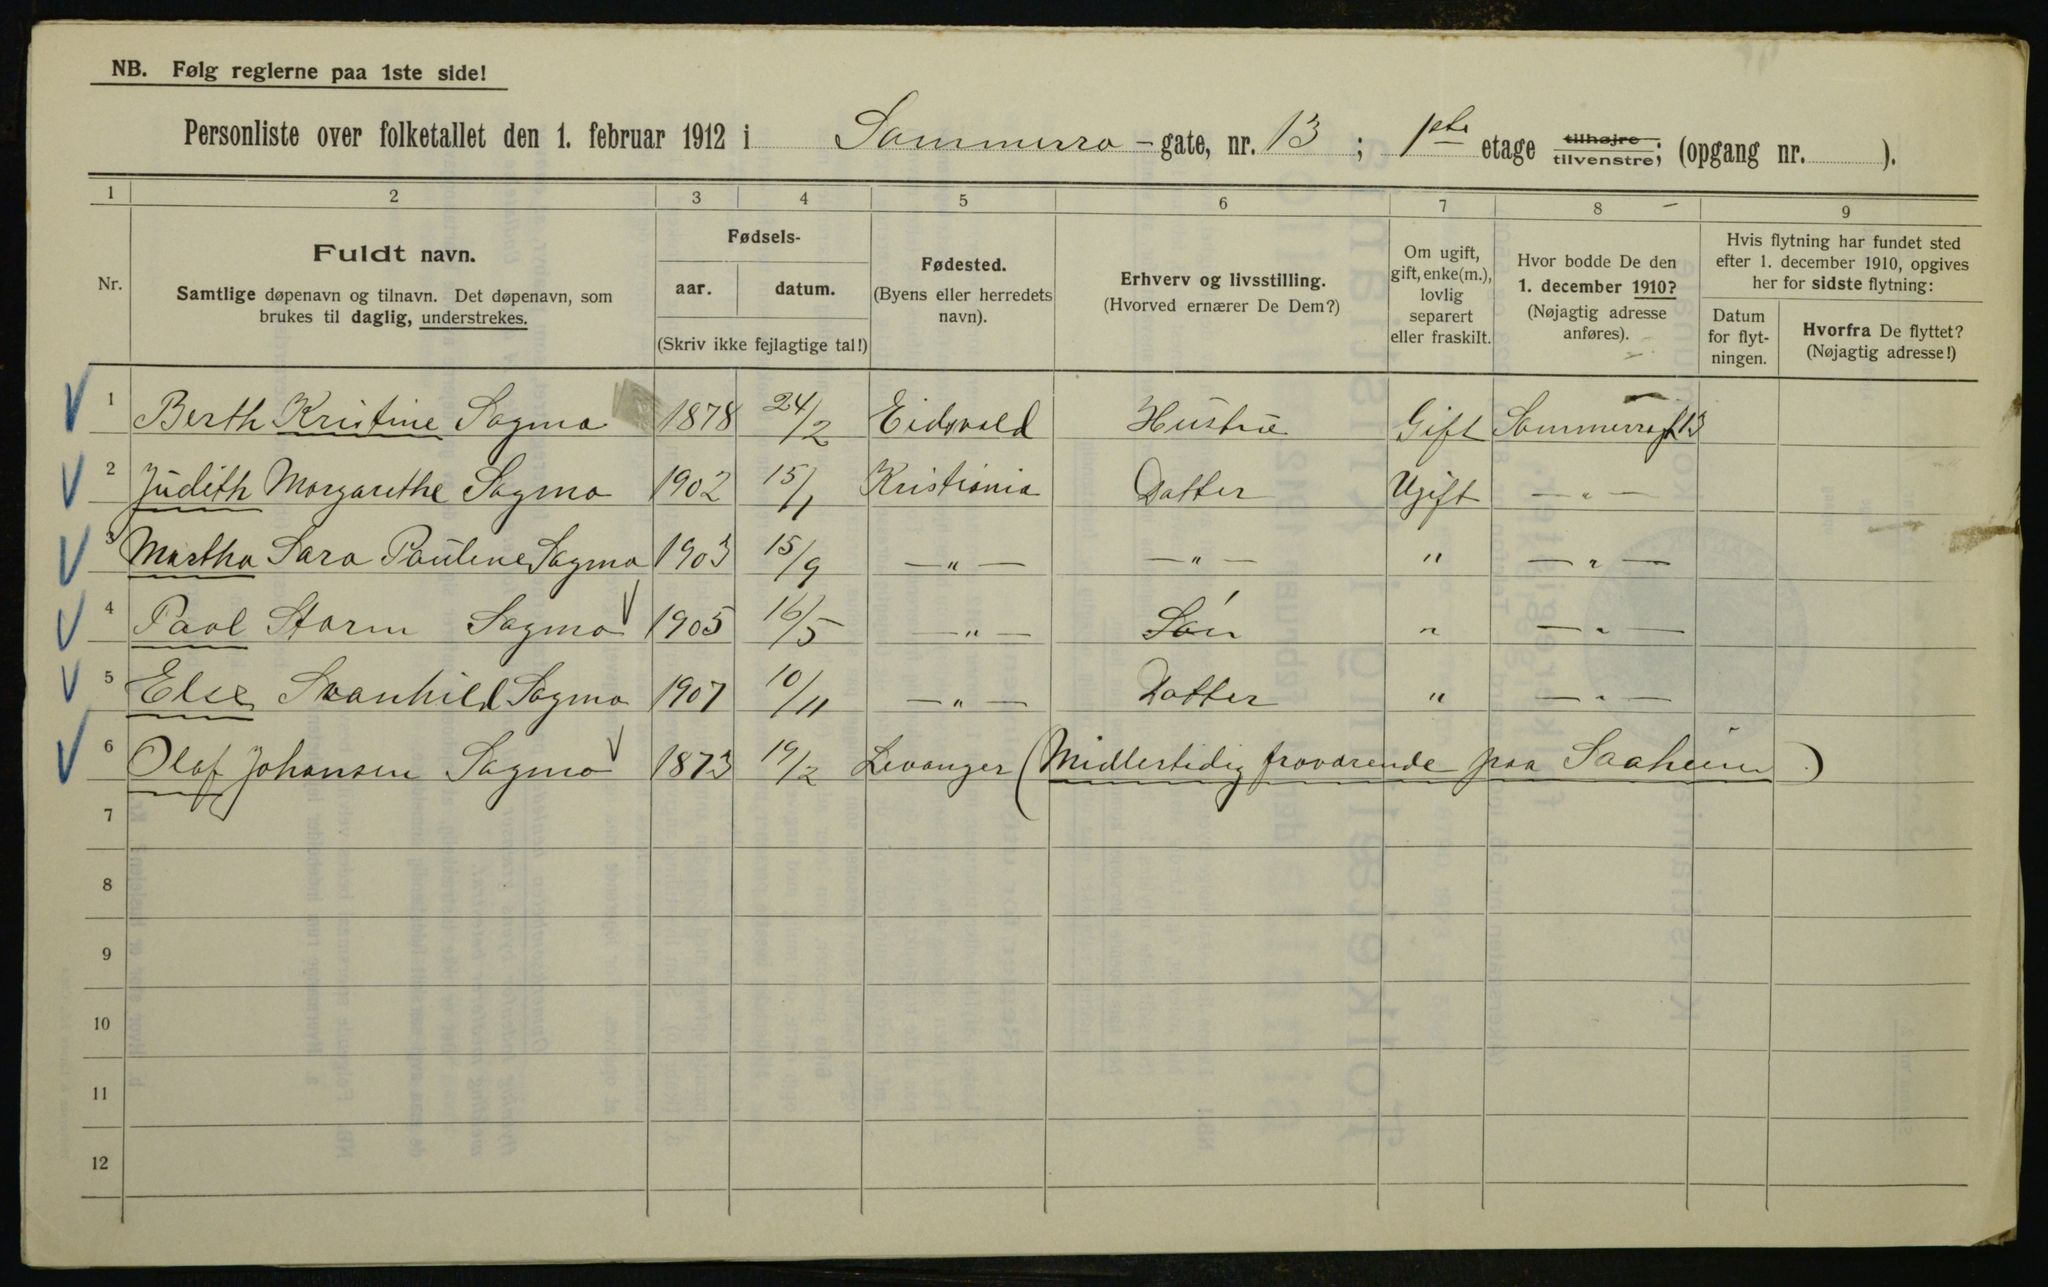 NB. Følg reglerne paa 1ste side!
Personliste over folketallet den 1. februar 1912 i Sommerro - gate, nr. 13 ; 1ste etage tilhøjre, tilvenstre, (opgang nr. ).
1 2 3 4 5 6 7 8 9
Nr.
Fuldt navn.
Samtlige døpenavn og tilnavn. Det døpenavn, som
brukes til daglig, understrekes.
Fødsels-
aar. datum.
(Skriv ikke fejlagtige tal!)
Fødested.
(Byens eller herredets
navn).
Erhverv og livsstilling.
(Hvorved ernærer De Dem?)
Om ugift,
gift, enke(m.),
lovlig
separert
eller fraskilt.
Hvor bodde De den
1. december 1910?
(Nøjagtig adresse
anføres).
Hvis flytning har fundet sted
efter 1. december 1910, opgives
her for sidste flytning:
Datum
for flyt-
ningen.
Hvorfra De flyttet?
(Nøjagtig adresse!)
1 Berth Kristine Sagmo 1878 24/2 Eidsvold Hustru Gift Sommerrogt 13
2 Judith Margarethe Sagmo 1902 15/1 Kristiania Datter Ugift — „ —
3 Martha Sara Pauline Sagmo 1903 15/9 — „ — — „ — „ — „ —
4 Paul Storm Sagmo 1905 16/5 — „ — Søn „ — „ —
5 Else Svanhild Sagmo 1907 10/11 — „ — Datter „ — „ —
6 Olaf Johansen Sagmo 1873 19/2 Levanger (Midlertidig fraværende paa Saaheim)
7
8
9
10
11
12